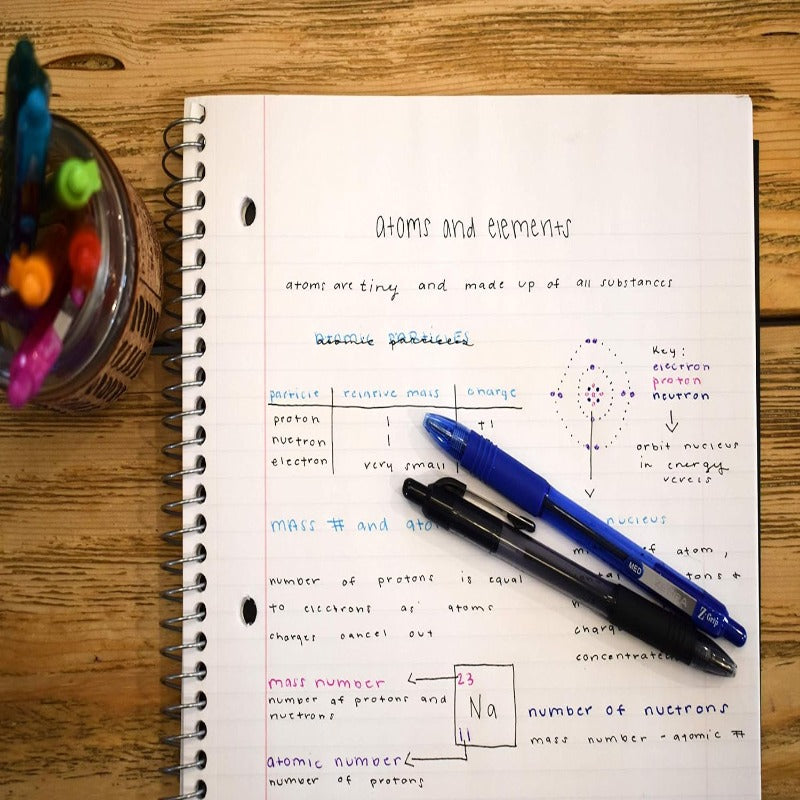 atoms and elements
atoms are tiny and made up of all substances
atomic particles
particle relative mass charge
proton 1 +1
nuetron 1
electron very small
Key:
electron
proton
neutron
orbit nucleus
in energy
levels
MASS # and
nucleus
of atom,
number of protons is equal
to elechrons as atoms
charges cancel out
mass number
number of protons and
nuetrons
23
Na
11
atomic number
number of protons
number of nuetrons
mass number - atomic #
MED
ZEBRA
Z-Grip